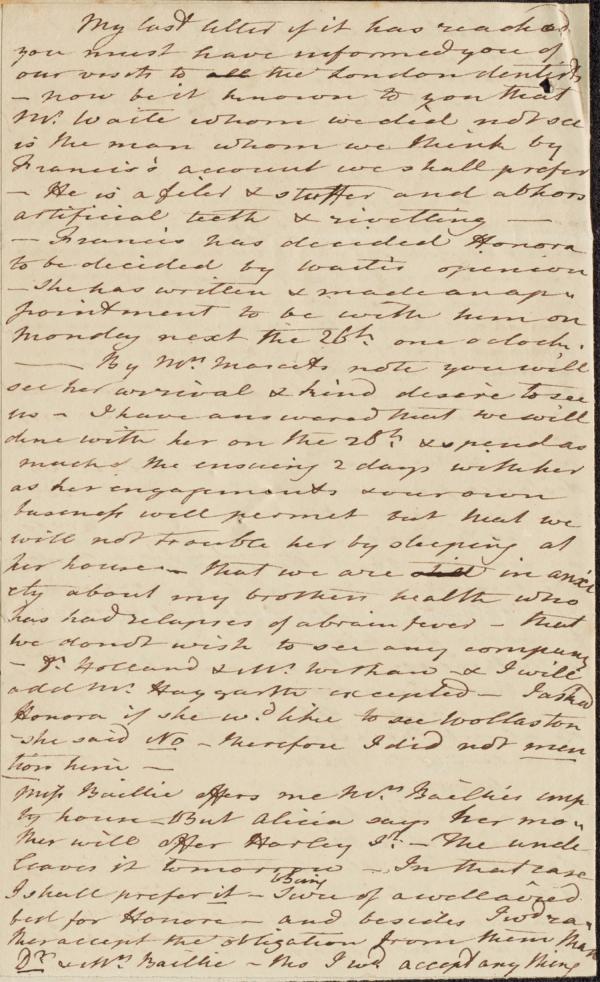 My last letter if it has reached
you must have informed you of
our visits to all the London dentists
– now be it known to you that
Mr. Waite whom we did not see
is the man whom we think by
Francis's account we shall prefer
– He is a filer & stuffer and abhors
artificial teeth & rivetting —
– Francis has decided Honora
to be decided by Waite's opinion
– She has written & made an ap"
pointment to be with him on
Monday next the 26th. one o clock.
—— By Mrs. Marcets note you will
see her arrival & kind desire to see
us – I have answered that we will
dine with her on the 28th. & spend as
much of the ensuing 2 days with her
as her engagements & our own
business will permit but that we
will not trouble her by sleeping at
her house – that we are still in anxi
ety about my brothers health who
has had relapses of a brain fever – that
we do not wish to see any company
– Dr. Holland & Mr. Wishaw – & I will
add Mr. Haggarth excepted – I asked
Honora if she wd. like to see Wollaston
– she said No – therefore I did not men
tion him —
Miss Baillie offers me Mrs. Baillies emp
ty house – But Alicia says her mo"
ther will offer Harley St. – The uncle
leaves it tomorrow – In that case
I shall prefer it – being
sure of a well aired
bed for Honora – and besides I wd ra"
ther accept the obligation from them than
Dr. & Mrs. Baillie – tho I wd. accept any thing